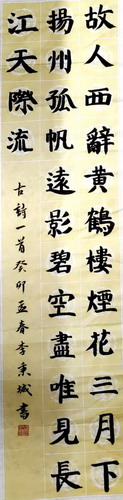 故人西辭黃鶴樓煙花三月下
揚州孤帆遠影碧空盡唯見長
江天際流
古詩一首癸卯孟春李秉城書